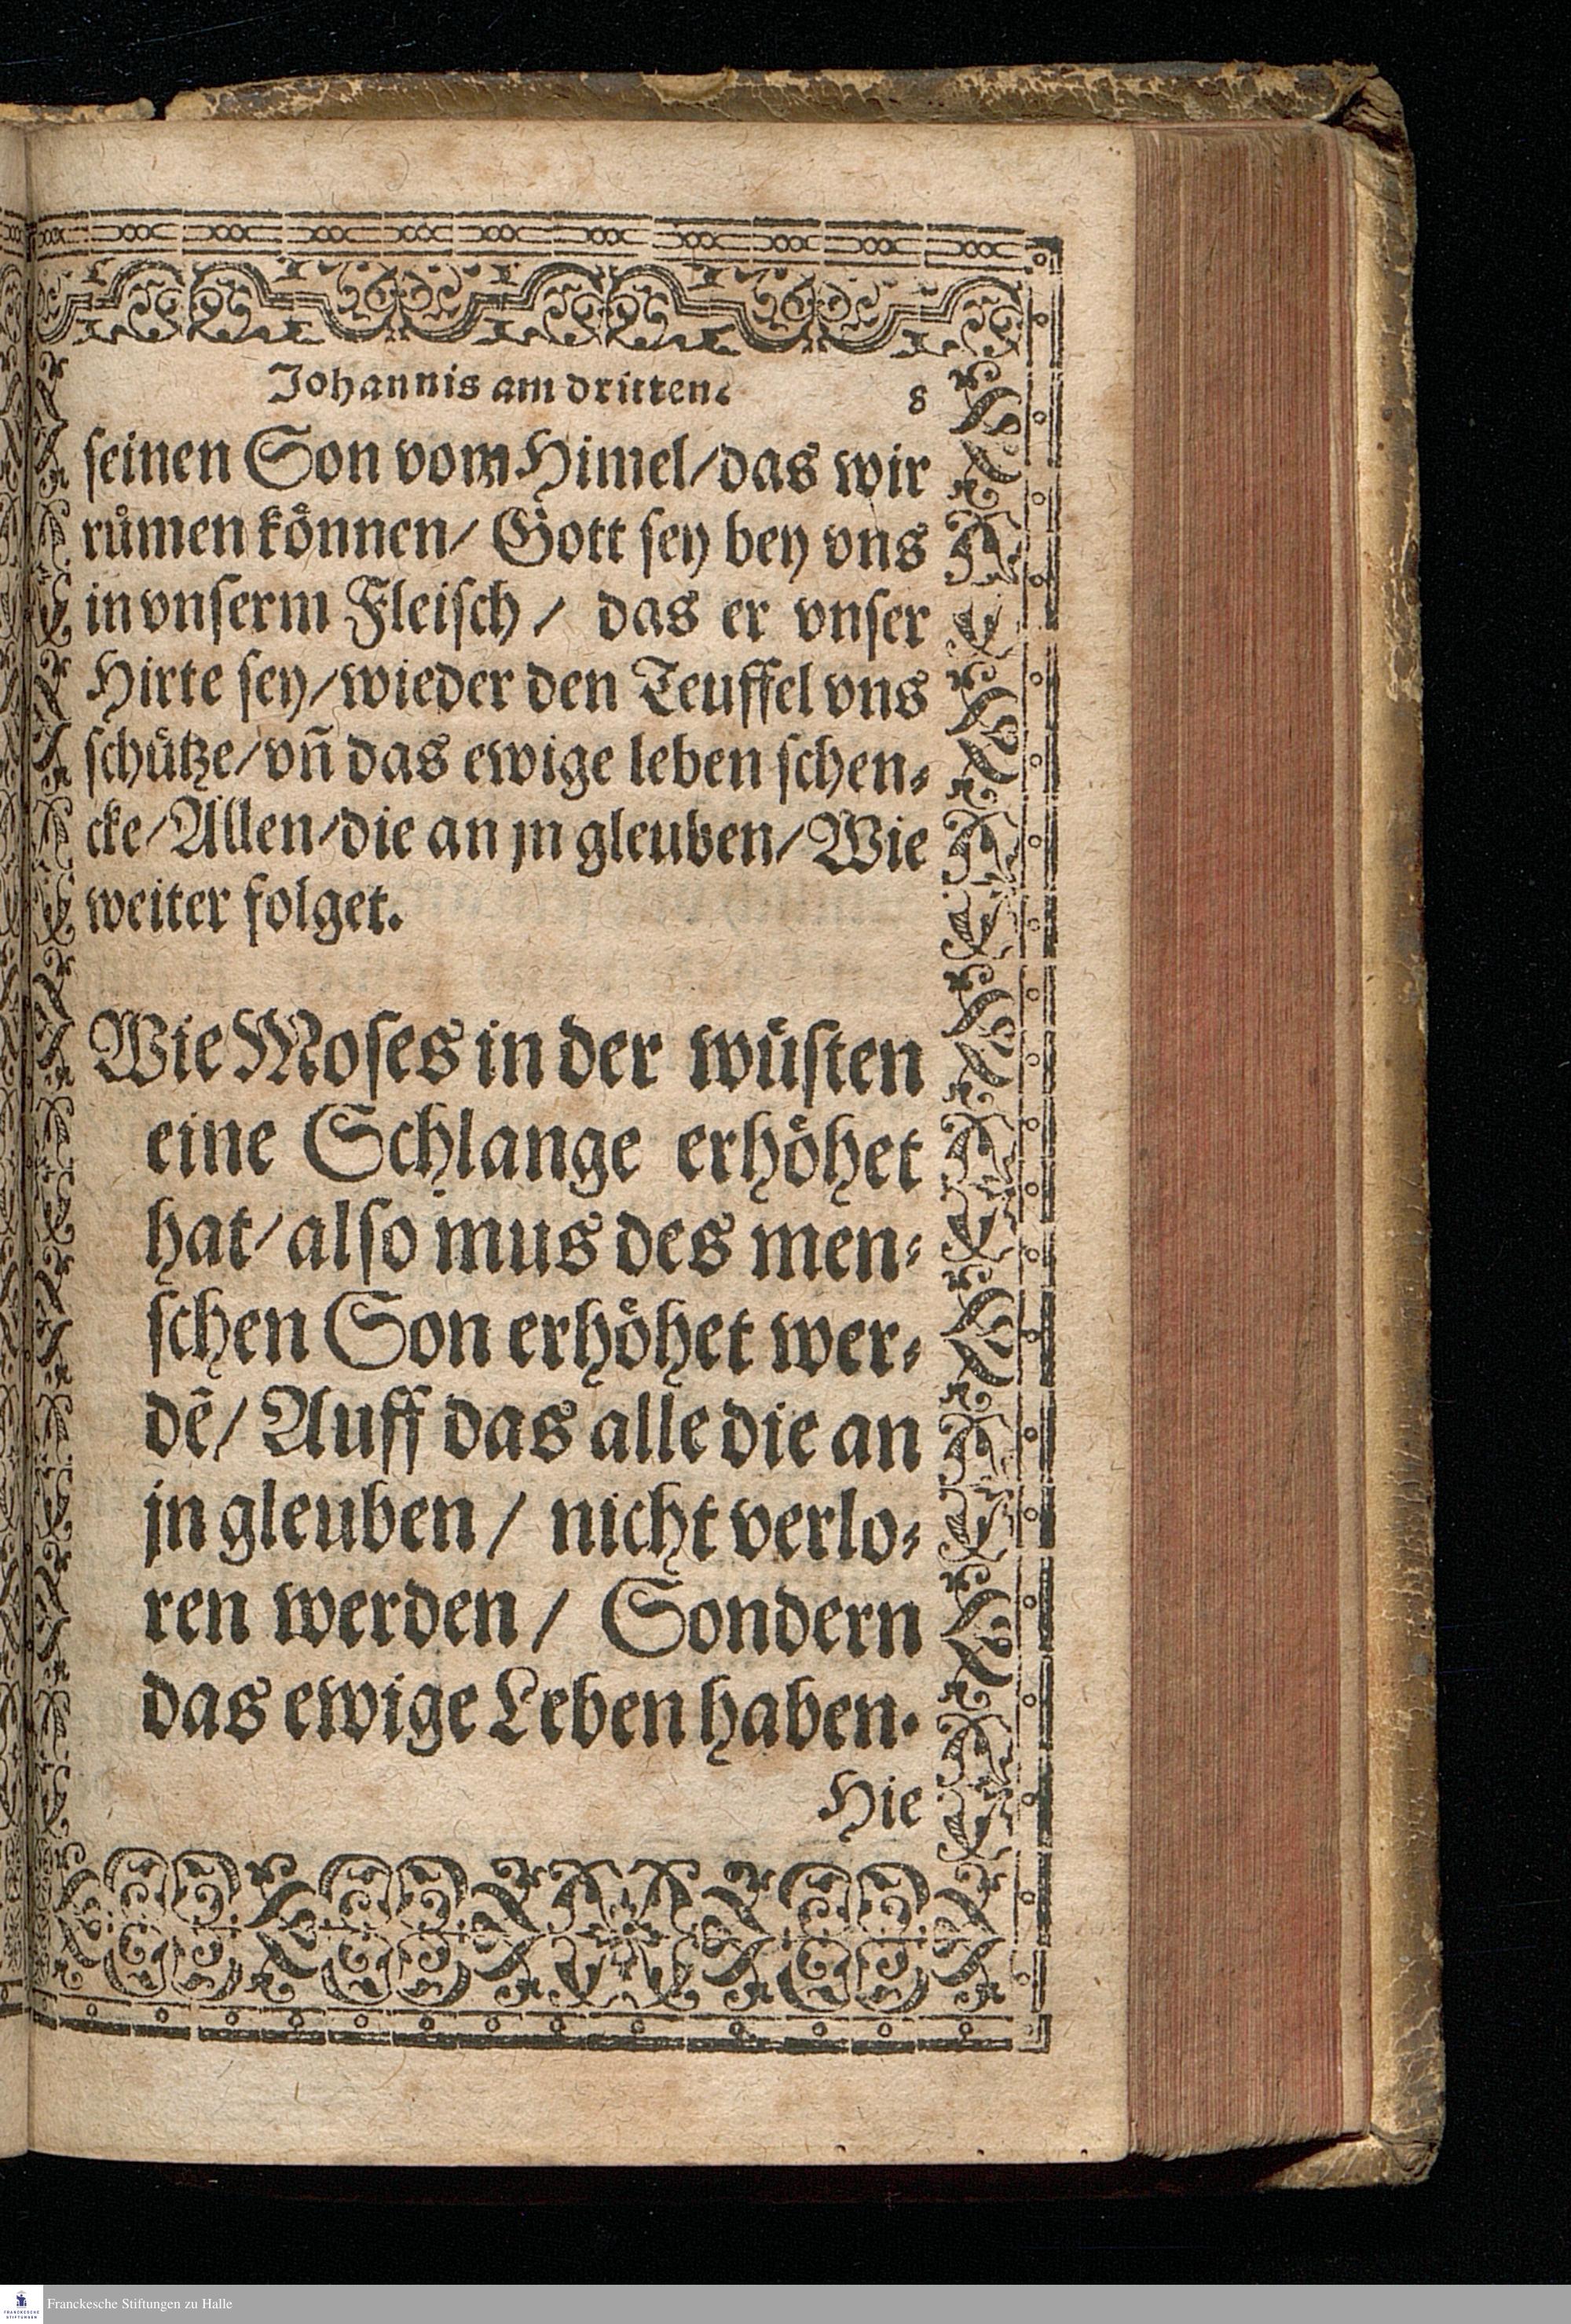 Johannis am dritten. 8
ſeinen Son vom Himel/das wir
ruͤmen koͤnnen/ Gott ſey bey vns
in vnſerm Fleiſch/ das er vnſer
Hirte ſey/wieder den Teuffel vns
ſchuͤtze/vn̄ das ewige leben ſchen⸗
cke/Allen/die an jn gleuben/Wie
weiter folget.
Wie Moſes in der wuͤſten
eine Schlange erhoͤhet
hat/alſo mus des men⸗
ſchen Son erhoͤhet wer⸗
dẽ/ Auff das alle die an
jn gleuben/ nicht verlo⸗
ren werden/ Sondern
das ewige Leben haben.
Hie
FRANCKESCHE
STIFTUNGEN
Franckesche Stiftungen zu Halle